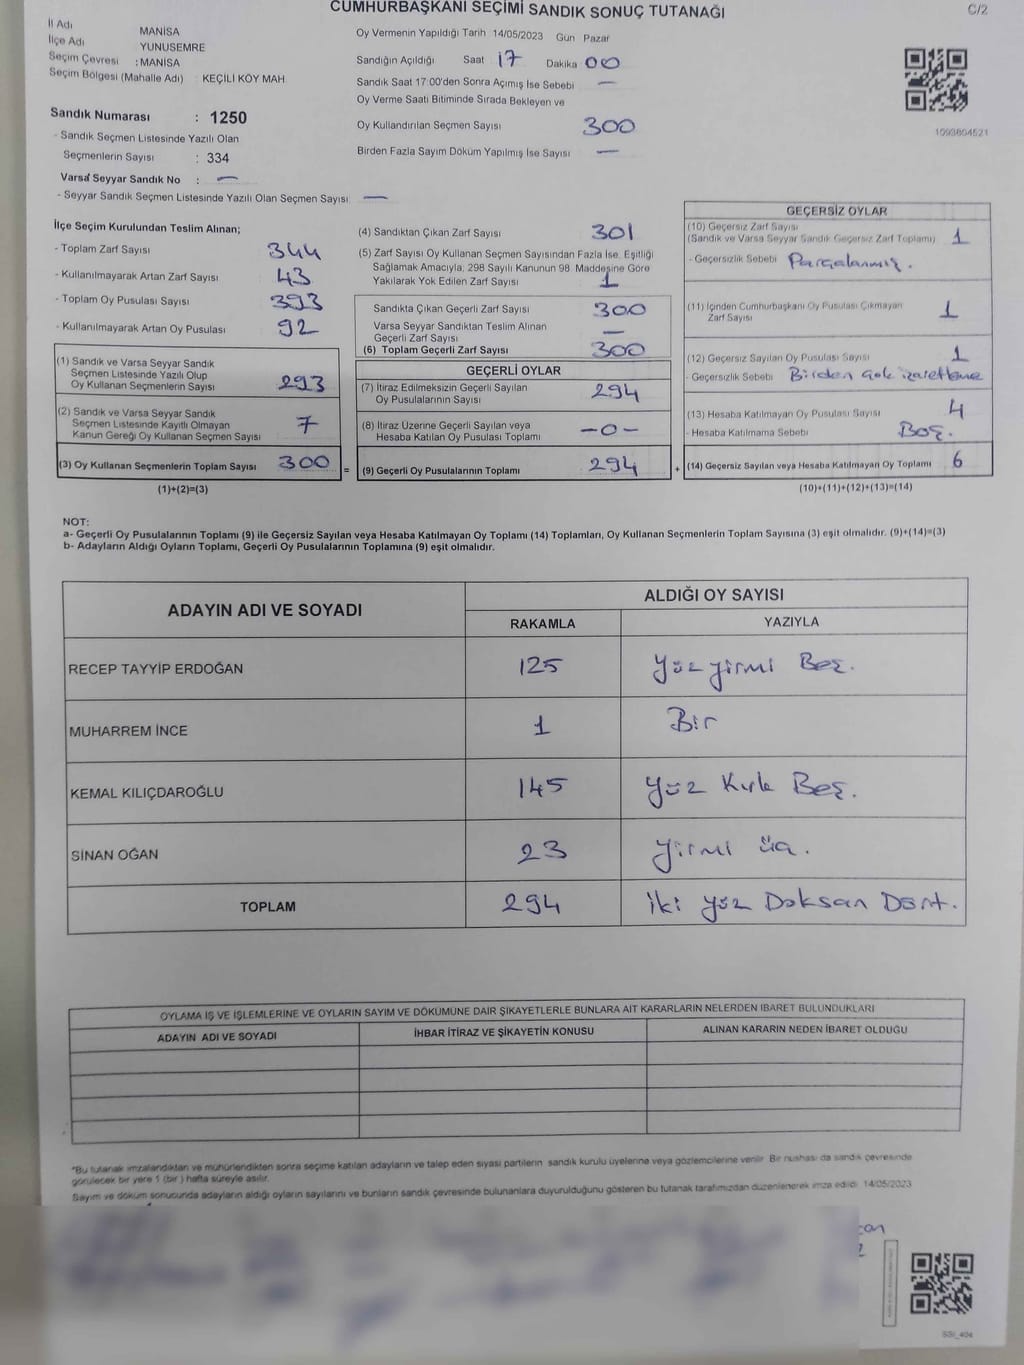 CUMHURBAŞKANI SEÇİMİ SANDIK SONUÇ TUTANAĞI
C/2
İl Adı MANİSA
İlçe Adı YUNUSEMRE
Seçim Çevresi : MANİSA
Seçim Bölgesi (Mahalle Adı) KEÇİLİ KÖY MAH
Sandık Numarası : 1250
- Sandık Seçmen Listesinde Yazılı Olan
Seçmenlerin Sayısı : 334
Varsa Seyyar Sandık No : —
- Seyyar Sandık Seçmen Listesinde Yazılı Olan Seçmen Sayısı —
Oy Vermenin Yapıldığı Tarih 14/05/2023 Gün Pazar
Sandığın Açıldığı Saat 17 Dakika 00
Sandık Saat 17:00'den Sonra Açımış İse Sebebi —
Oy Verme Saati Bitiminde Sırada Bekleyen ve
Oy Kullandırılan Seçmen Sayısı 300
Birden Fazla Sayım Döküm Yapılmış İse Sayısı —
1093604521
İlçe Seçim Kurulundan Teslim Alınan;
- Toplam Zarf Sayısı 344
- Kullanılmayarak Artan Zarf Sayısı 43
- Toplam Oy Pusulası Sayısı 393
- Kullanılmayarak Artan Oy Pusulası 92
(1) Sandık ve Varsa Seyyar Sandık
Seçmen Listesinde Yazılı Olup
Oy Kullanan Seçmenlerin Sayısı 293
(2) Sandık ve Varsa Seyyar Sandık
Seçmen Listesinde Kayıtlı Olmayan
Kanun Gereği Oy Kullanan Seçmen Sayısı 7
(3) Oy Kullanan Seçmenlerin Toplam Sayısı 300 =
(1)+(2)=(3)
(4) Sandıktan Çıkan Zarf Sayısı 301
(5) Zarf Sayısı Oy Kullanan Seçmen Sayısından Fazla İse, Eşitliği
Sağlamak Amacıyla, 298 Sayılı Kanunun 98. Maddesine Göre
Yakılarak Yok Edilen Zarf Sayısı 1
Sandıkta Çıkan Geçerli Zarf Sayısı 300
Varsa Seyyar Sandıktan Teslim Alınan
Geçerli Zarf Sayısı —
(6) Toplam Geçerli Zarf Sayısı 300
GEÇERLİ OYLAR
(7) İtiraz Edilmeksizin Geçerli Sayılan
Oy Pusulalarının Sayısı 294
(8) İtiraz Üzerine Geçerli Sayılan veya
Hesaba Katılan Oy Pusulası Toplamı -0-
(9) Geçerli Oy Pusulalarının Toplamı 294 +
GEÇERSİZ OYLAR
(10) Geçersiz Zarf Sayısı
(Sandık ve Varsa Seyyar Sandık Geçersiz Zarf Toplamı) 1
- Geçersizlik Sebebi Parçalanmış.
(11) İçinden Cumhurbaşkanı Oy Pusulası Çıkmayan
Zarf Sayısı 1
(12) Geçersiz Sayılan Oy Pusulası Sayısı 1
- Geçersizlik Sebebi Birden çok işaretleme
(13) Hesaba Katılmayan Oy Pusulası Sayısı 4
- Hesaba Katılmama Sebebi Boş.
(14) Geçersiz Sayılan veya Hesaba Katılmayan Oy Toplamı 6
(10)+(11)+(12)+(13)=(14)
NOT:
a- Geçerli Oy Pusulalarının Toplamı (9) ile Geçersiz Sayılan veya Hesaba Katılmayan Oy Toplamı (14) Toplamları, Oy Kullanan Seçmenlerin Toplam Sayısına (3) eşit olmalıdır. (9)+(14)=(3)
b- Adayların Aldığı Oyların Toplamı, Geçerli Oy Pusulalarının Toplamına (9) eşit olmalıdır.
ADAYIN ADI VE SOYADI
ALDIĞI OY SAYISI
RAKAMLA YAZIYLA
RECEP TAYYİP ERDOĞAN 125 Yüz yirmi Beş.
MUHARREM İNCE 1 Bir
KEMAL KILIÇDAROĞLU 145 Yüz Kırk Beş.
SİNAN OĞAN 23 Yirmi üç.
TOPLAM 294 İki yüz Doksan Dört.
OYLAMA İŞ VE İŞLEMLERİNE VE OYLARIN SAYIM VE DÖKÜMÜNE DAİR ŞİKAYETLERLE BUNLARA AİT KARARLARIN NELERDEN İBARET BULUNDUKLARI
ADAYIN ADI VE SOYADI İHBAR İTİRAZ VE ŞİKAYETİN KONUSU ALINAN KARARIN NEDEN İBARET OLDUĞU
*Bu tutanak imzalandıktan ve mühürlendikten sonra seçime katılan adayların ve talep eden siyasi partilerin sandık kurulu üyelerine veya gözlemcilerine verilir. Bir nushası da sandık çevresinde
görülecek bir yere 1 (bir) hafta süreyle asılır.
Sayım ve döküm sonucunda adayların aldığı oyların sayılarını ve bunların sandık çevresinde bulunanlara duyurulduğunu gösteren bu tutanak tarafımızdan düzenlenerek imza edildi. 14/05/2023
SSI_404